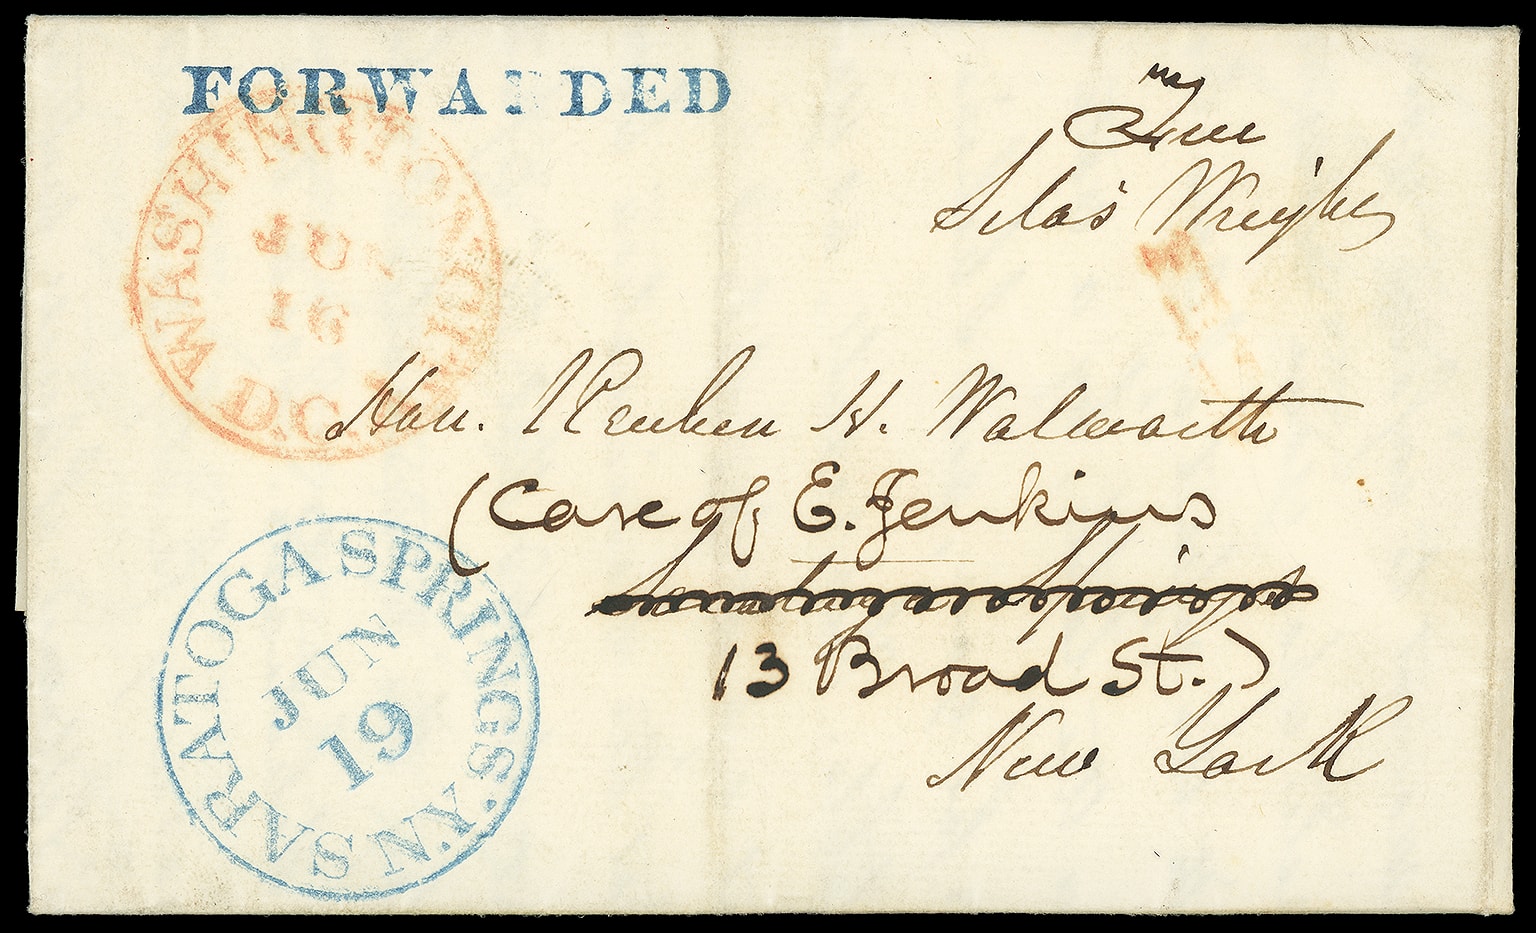 FORWARDED
Free
Silas Wright
WASHINGTON CITY D.C.
JUN
16
FREE
Hon. Reuben H. Walworth
(Care of E. Jenkins
Saratoga Springs
13 Broad St.)
New York
SARATOGA SPRINGS. N.Y.
JUN
19